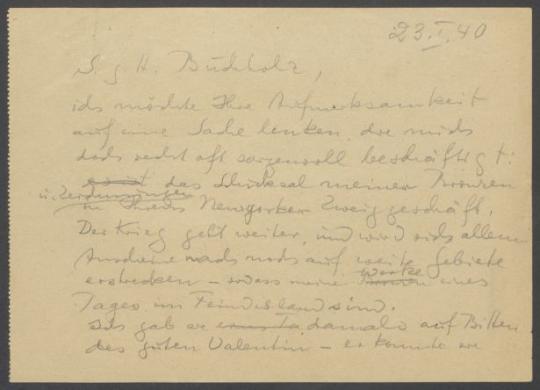 23.I.40
S. g. H. Buchholz,
ich möchte Ihre Aufmerksamkeit
auf eine Sache lenken, die mich
doch recht oft sorgenvoll beschäftigt:
das Schicksal meiner Bronzen
u. Zeichnungen
in Ihrem Newyorker Zweiggeschäft.
Der Krieg geht weiter, und wird sich allem
Anscheine nach noch auf weite Gebiete
erstrecken – sodass meine Werke eines
Tages im Feindesland sind.
Ich gab sie damals auf Bitten
des guten Valentin – er konnte sie